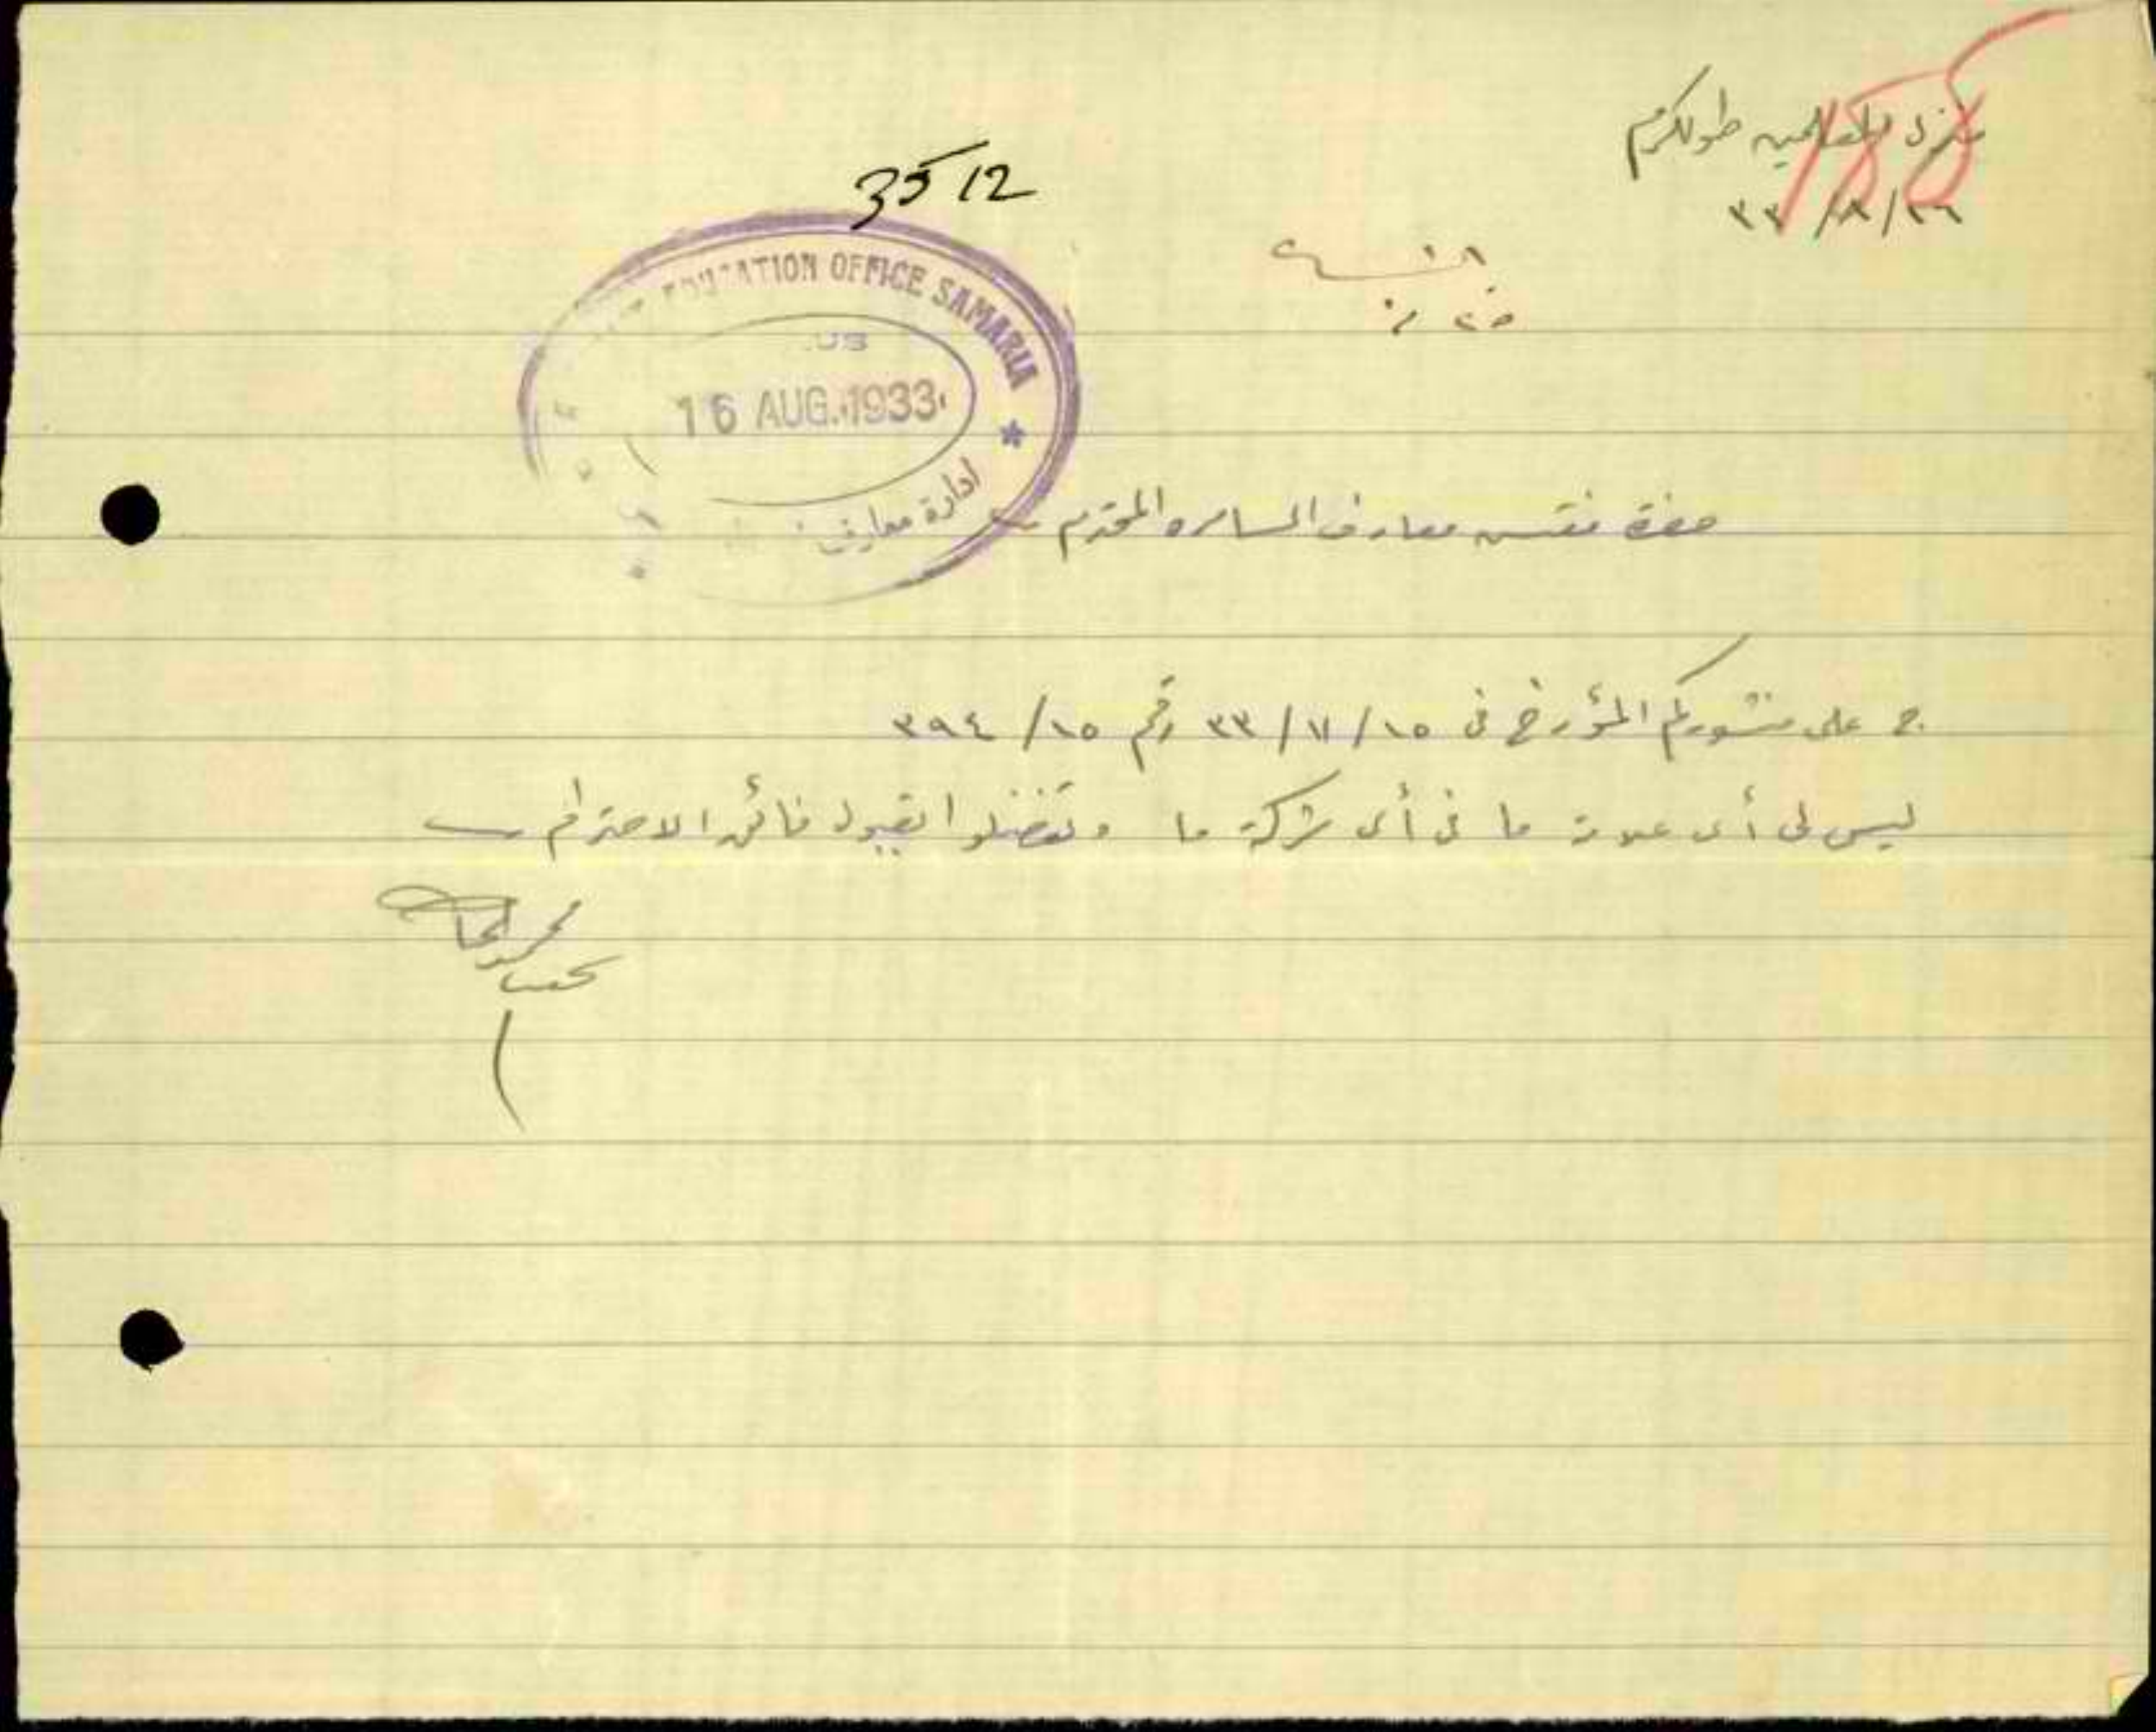 طولكرم
3512
EDUCATION OFFICE SAMARIA
16 AUG. 1933
ادارة معارف
حضرة مفتش معارف السامره المحترم
ج على منشوركم المؤرخ في ١٥/١١/٣٣ رقم ١٥/٣٩٤
ليس لي أى علاقة ما في أى شركة ما وتفضلوا بقبول فائق الاحترام